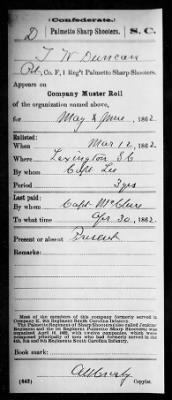 (Confederate.)
D Palmetto Sharp Shooters. S.C.
T W Duncan
Pvt, Co. F, 1 Reg't Palmetto Sharp Shooters.
Appears on
Company Muster Roll
of the organization named above,
for May & June, 1862.
Enlisted:
When Mar 12, 1862.
Where Lexington SC
By whom Capt Lee
Period 3 yrs
Last paid:
By whom Capt McClure
To what time Apr 30, 1862.
Present or absent Present
Remarks:
Most of the members of this company formerly served in
Company K, 9th Regiment South Carolina Infantry.
The Palmetto Regiment of Sharp Shooters (also called Jenkins'
Regiment and the 1st Regiment Palmetto Sharpshooters) was
organized April 1862, with twelve companies, which were
composed principally of men who had formerly served in the
4th, 5th and 9th Regiments South Carolina Infantry.
Book mark:
(642)
Copyist.